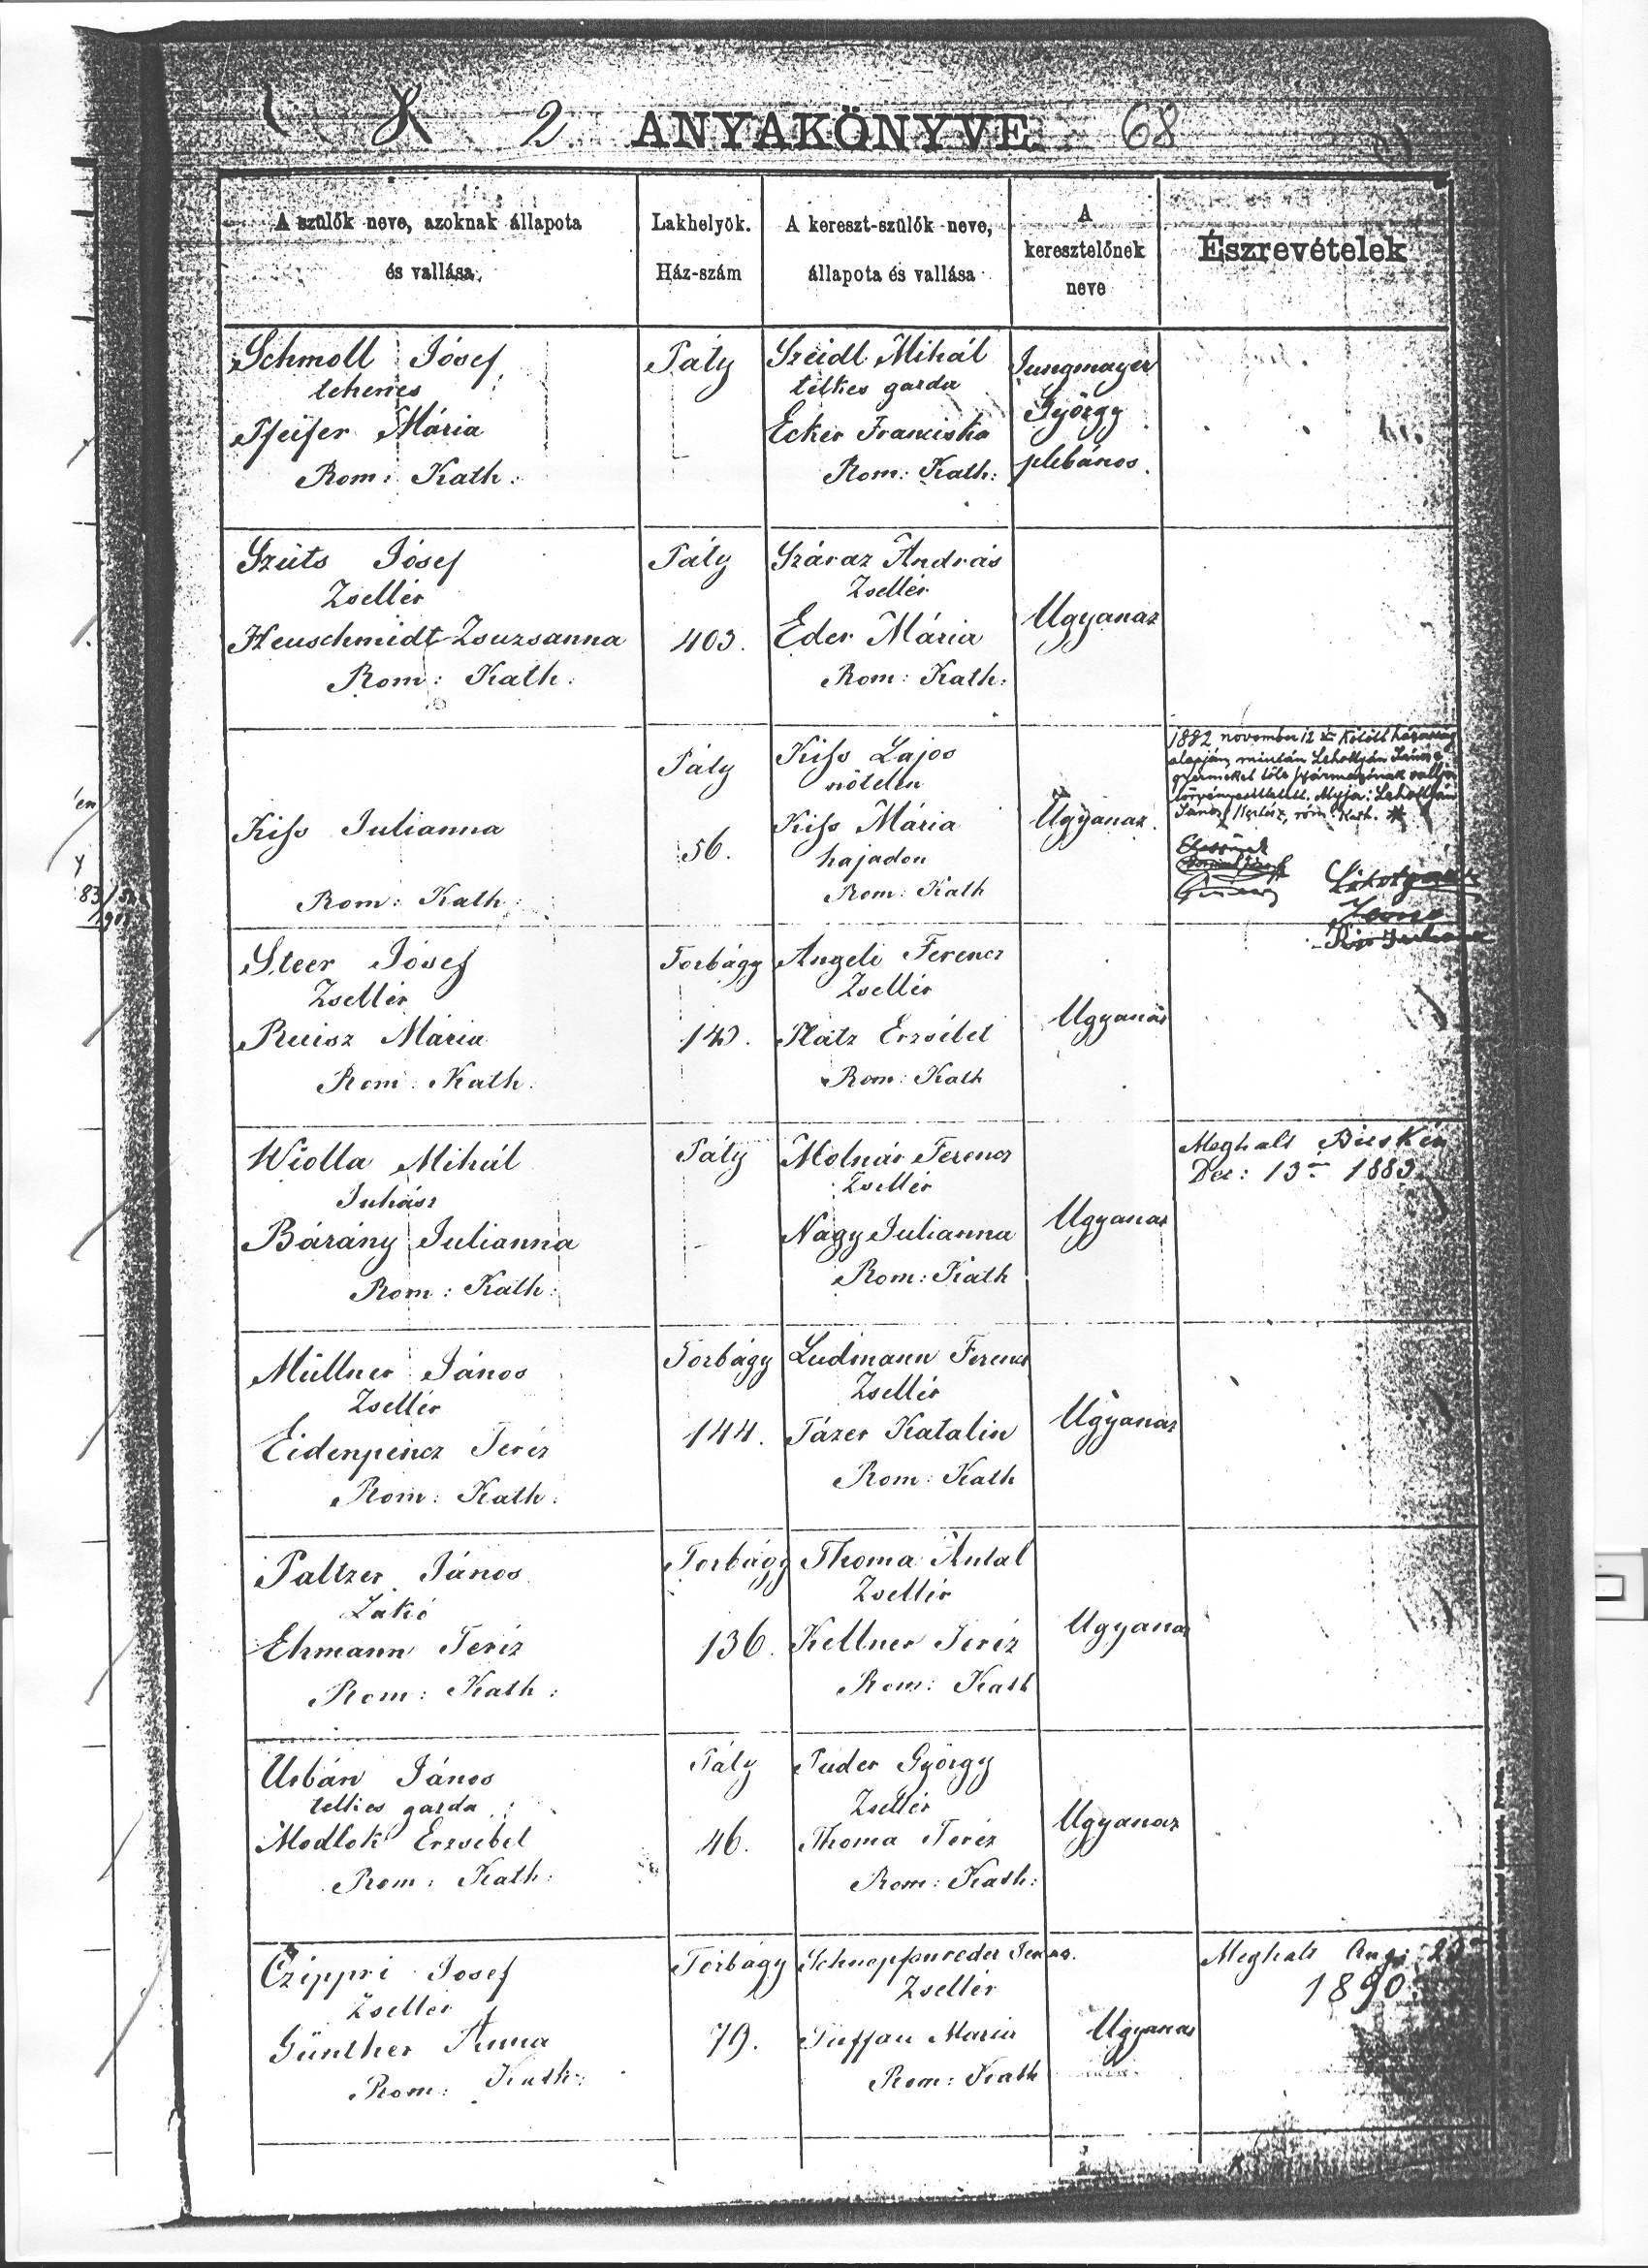 2 ANYAKÖNYVE 68
A szülők neve, azoknak állapota
és vallása.
Lakhelyök.
Ház-szám
A kereszt-szülők neve,
állapota és vallása
A
keresztelőnek
neve
Észrevételek
Schmoll Jósef
tehenes
Pfeifer Mária
Rom: Kath:
Páty
Szeidl Mihál
telkes gazda
Ecker Franciska
Rom: Kath:
Jungmayer
György
plébános.
Szüts Jósef
Zsellér
Heuschmidt Zsuzsanna
Rom: Kath:
Páty
403.
Száraz András
Zsellér
Eder Mária
Rom: Kath:
Ugyanaz
Kiss Julianna
Rom: Kath:
Páty
56.
Kiss Lajos
nőtelen
Kiss Mária
hajadon
Rom: Kath
Ugyanaz.
1882 november 12 én kötött házasság
alapján, miután Lehotkján János a
gyermeket tőle származónak vallja
törvényesíttetett. Atyja: Lehotkján
János, róm. kath. *
Steer Jósef
Zsellér
Ruisz Mária
Rom: Kath:
Torbágy
Angeli Ferencz
Zsellér
Platz Erzsébet
Rom: Kath
Ugyanaz
Wiolla Mihál
Juhász
Bárány Julianna
Rom: Kath:
Páty
-
Molnár Ferencz
Zsellér
Nagy Julianna
Rom: Kath
Ugyanaz
Meghalt Bicskén
Dec: 13án 1883
Müllner János
Zsellér
Eidenpencz Teréz
Rom: Kath:
Torbágy
144.
Ludmann Ferencz
Zsellér
Tázer Katalin
Rom: Kath
Ugyanaz
Paltzer János
Lakó
Ehmann Teréz
Rom: Kath:
Torbágy
136.
Thoma Antal
Zsellér
Kellner Teréz
Rom: Kath
Ugyanaz
Urbán János
telkes gazda
Modlok Erzsébet
Rom: Kath:
Páty
46.
Puder György
Zsellér
Thoma Teréz
Rom: Kath:
Ugyanaz
Czippri Josef
Zsellér
Günther Anna
Rom: Kath:
Torbágy
79.
Zsellér
Maria
Rom: Kath
Ugyanaz
Meghalt Aug:
1890.